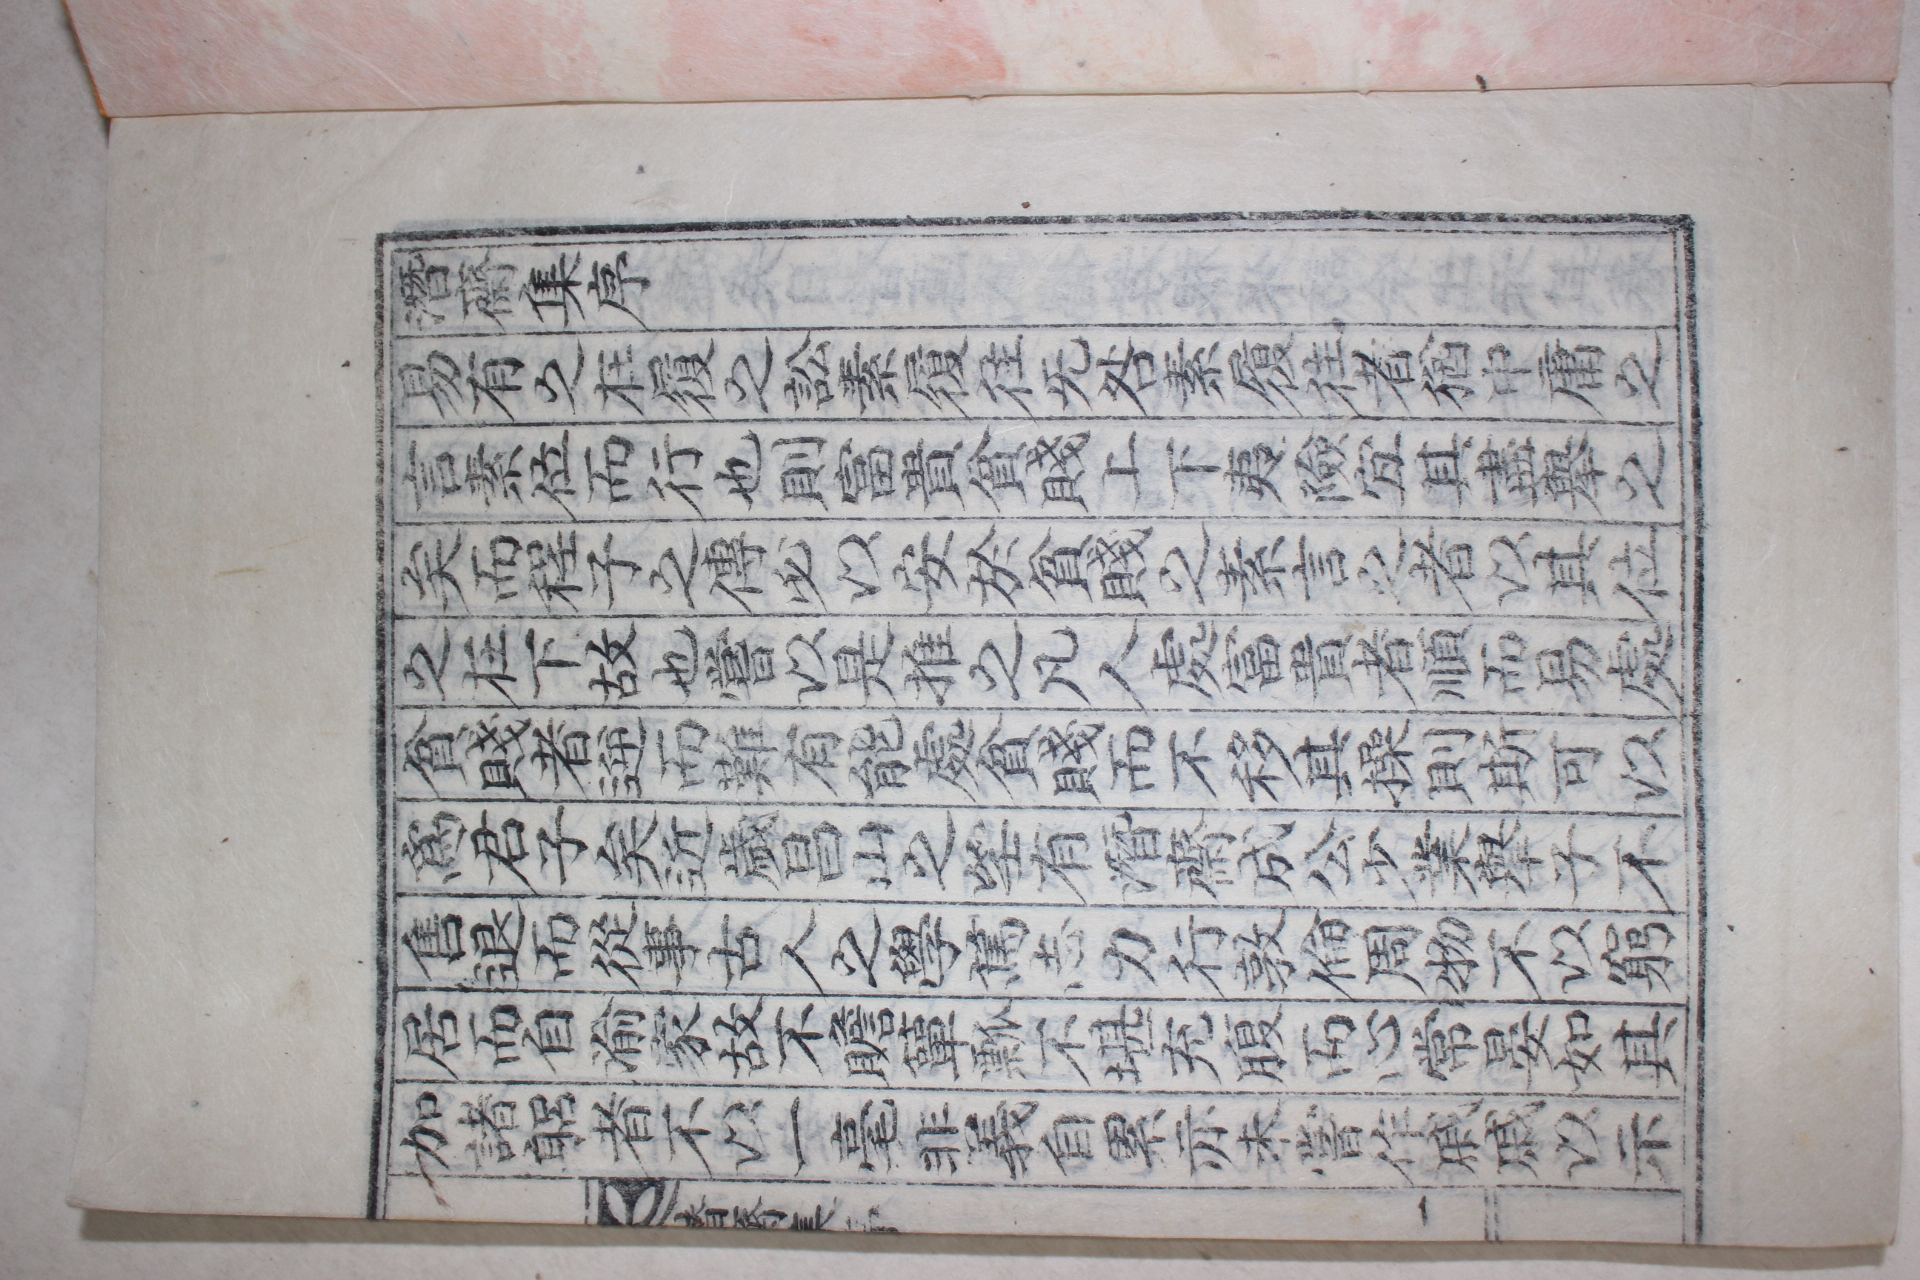 潛齋集序
易有之在履之訟素履往无咎素履往者猶中庸之
言素位而行也則富貴貧賤上下夷險宜其盡擧之
矣而程子之傳必以安於貧賤之素言之者以其位
之在下故也嘗以是推之凡人處富貴者順而易處
貧賤者逆而難有能處貧賤而不移其操則斯可以
爲君子矣近歲昌山之望有潛齋成公少業擧子不
售退而從事古人之學篤志力行敦倫周物不以窮
居而自渝家故不贍簞瓢不堪充腹而心常晏如其
加諸躬者不以一毫非義自累亦未嘗作戚戚以示
潛齋集序
一